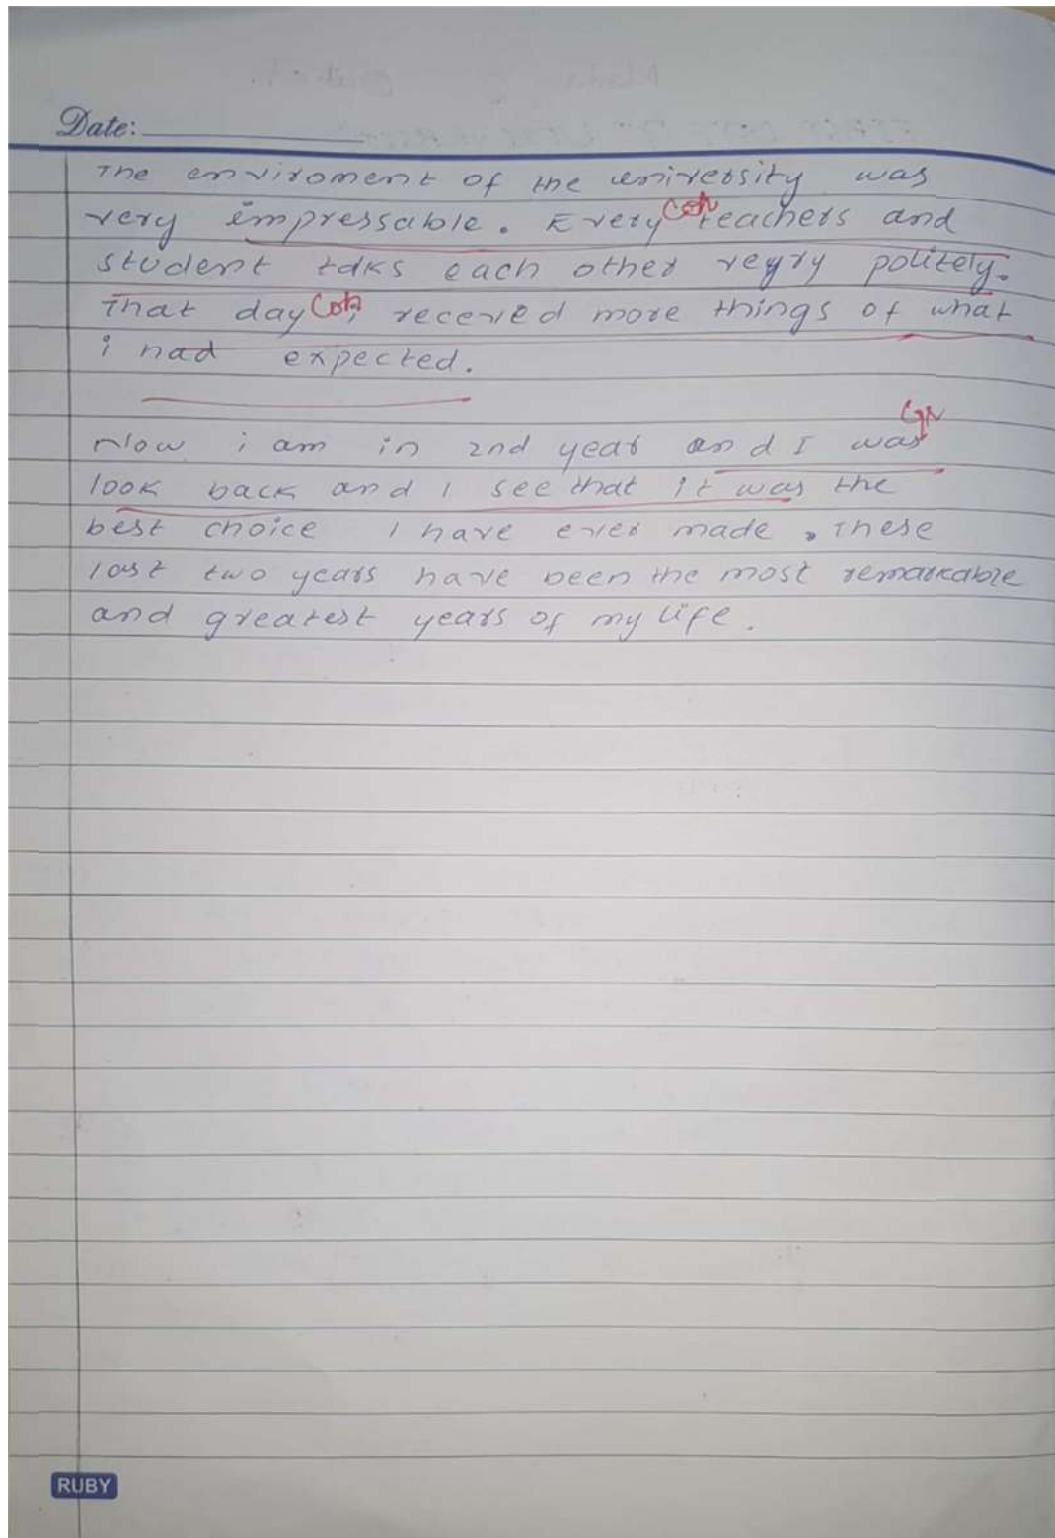 Date:
The enviroment of the university was
very impressable. Every teachers and
student talks each other veyry politely.
That day, received more things of what
i had expected.
Now i am in 2nd year and I was
look back and I see that it was the
best choice I have ever made. These
last two years have been the most remarkable
and greatest years of my life.
RUBY